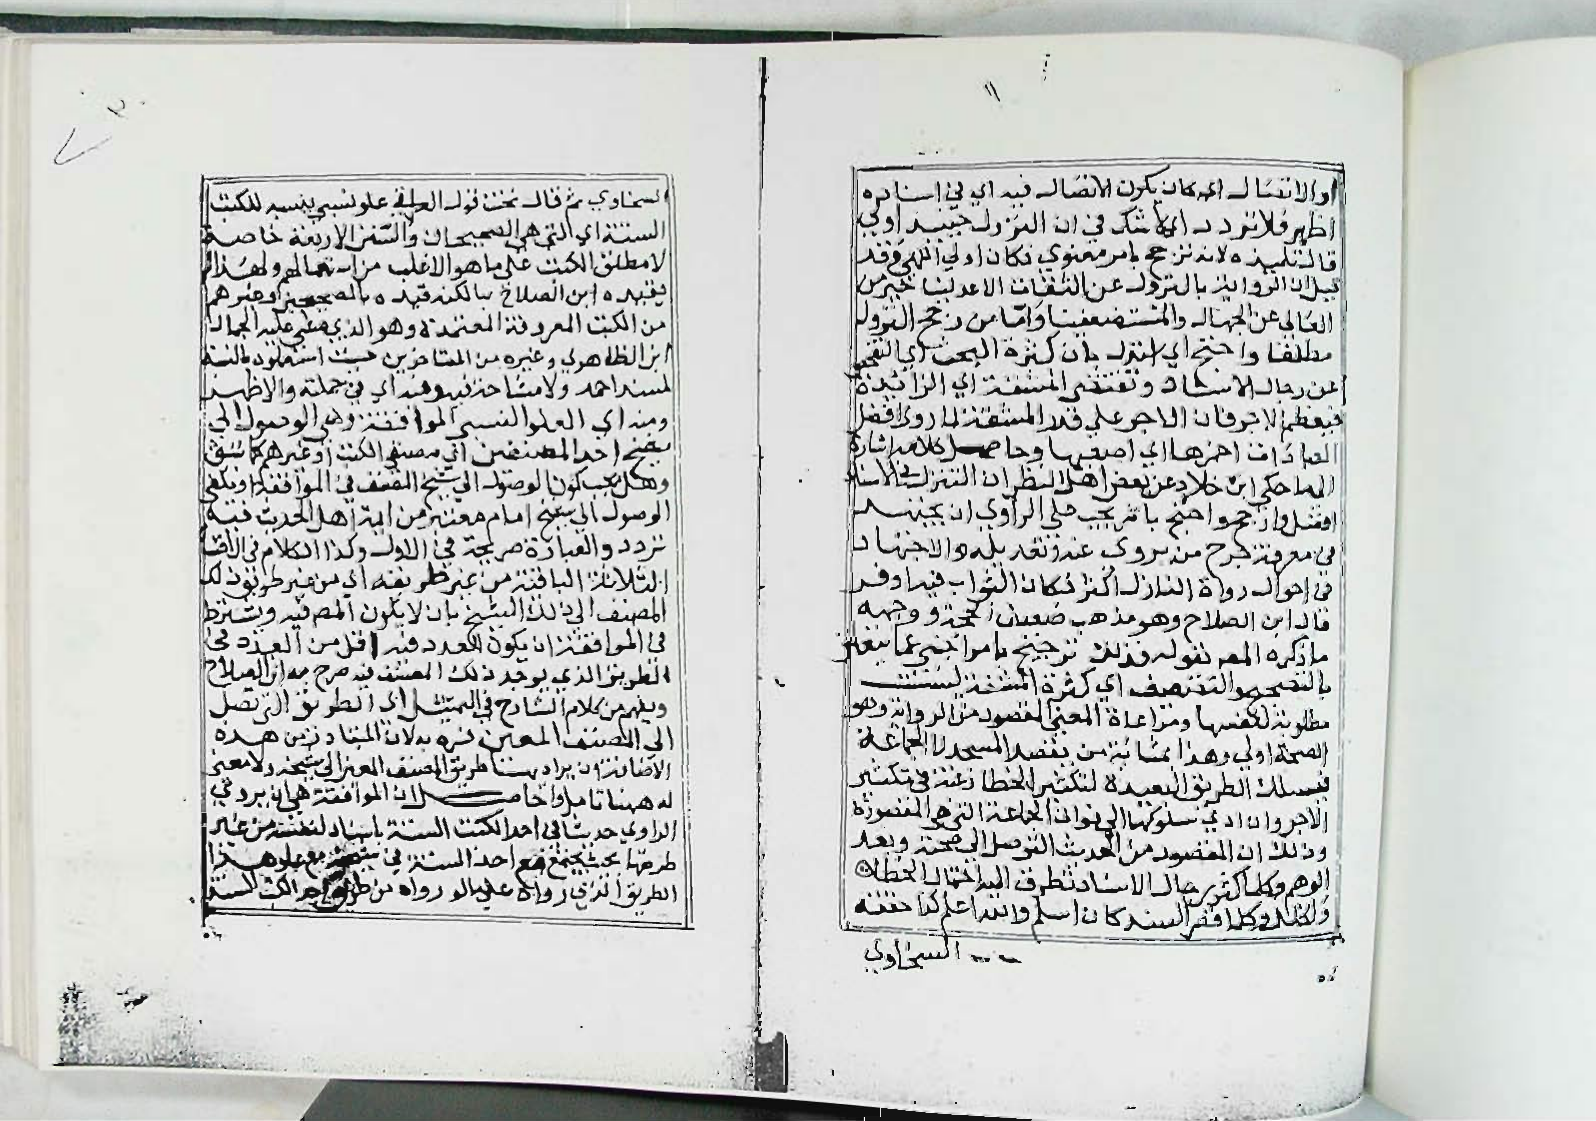 ١١
او الاتصال اي كان يكون الاتصال فيه اي في اسناده
اظهر فلا تردد اي لا شك في ان النزول حينئذ اولي
قال تلميذه لانه ترجح بامر معنوي فكان اولي انتهي وقد
قيل ان الرواية بالنزول عن الثقات الاعدلينا خير من
العالي عن الجهال والمستضعفينا واما من رجح النزول
مطلقا واحتج اي استدل بان كثرة البحث اي التفحص
عن رجال الاسناد وتقتضي المشقة اي الزائدة
فيعظم الاجر فان الاجر علي قدر المشقة لما روي افضل
العبادات احمزها اي اصعبها وحاصل كلامه اشارة
الي ما حكي ابن خلاد عن بعض اهل النظر ان التنزل في الاسناد
افضل وارجح واحتج بانه يجب علي الراوي ان يجتهد
في معرفة جرح من يروي عنه وتعديله والاجتهاد
في احوال رواة النازل اكثر فكان الثواب فيه اوفر
قال ابن الصلاح وهو مذهب ضعيف الحجة ووجهه
ما ذكره المص بقوله فذلك ترجيح بامر اجنبي عما يتعلق
بالتصحيح والتضعيف اي كثرة المشقة ليست
مطلوبة لنفسها ومراعاة المعني المقصود من الرواية وهو
الصحة اولي وهذا بمثابة من يقصد المسجد لا الجماعة
فيسلك الطريق البعيدة لتكثير الخطا رغبة في تكثير
الاجر وان ادي سلوكها الي فوات الجماعة التي هي المقصودة
وذلك ان المقصود من الحديث التوصل الي صحته وبعد
الوهم وكلما كثر رجال الاسناد تطرق اليه احتمال الخطا
والخلل وكلما قصر السند كان اسلم والله اعلم كذا حققه
السخاوي
السخاوي ثم قال تحت قول العراقي علو نسبي بنسبة للكتب
الستة اي التي هي الصحيحان والسنن الاربعة خاصة
لا مطلق الكتب علي ما هو الاغلب من استعمالهم ولهذا لم
يقيده ابن الصلاح بها لكنه قيده بالصحيحين وغيرهما
من الكتب المعروفة المعتمدة وهو الذي مشي عليه الجمال
ابن الظاهري وغيره من المتاخرين حيث استعملوه بالنسبة
لمسند احمد ولا مشاحة فيه ومنه اي في جملته والاظهر
ومنه اي العلو النسبي الموافقة وهي الوصول الي
شيخ احد المصنفين اي مصنفي الكتب او غيرهم كما سبق
وهل يجب كون الوصول الي شيخ المصنف في الموافقة او يكفي
الوصول الي شيخ امام معتبر من ايمة اهل الحديث فيه
تردد والعبارة صريحة في الاول وكذا الكلام في الاقسام
الثلاثة الباقية من غير طريقه اي من غير طريق ذلك
المصنف الي ذلك الشيخ بان لا يكون المصـ فيه ويشترط
في الموافقة ان يكون العدد فيه اقل من العدد في
الطريق الذي يوجد ذلك المصنف فيه صرح به ابن الصلاح
ويفهم من كلام الشارح في التمثيل اي الطريق التي تصل
الي المصنف المعين فسره به لان المتبادر من هذه
الاضافة ان يراد بها طريق المصنف المعين الي شيخه ولا معني
له ههنا تامل وحاصله ان الموافقة هي ان يروي
الراوي حديثا في احد الكتب الستة باسناد لنفسه من غير
طريقها بحيث يجتمع مع احد الستة في شيخه مع علو هذا
الطريق الذي رواه علي ما لو رواه من طريق احد الكتب الستة